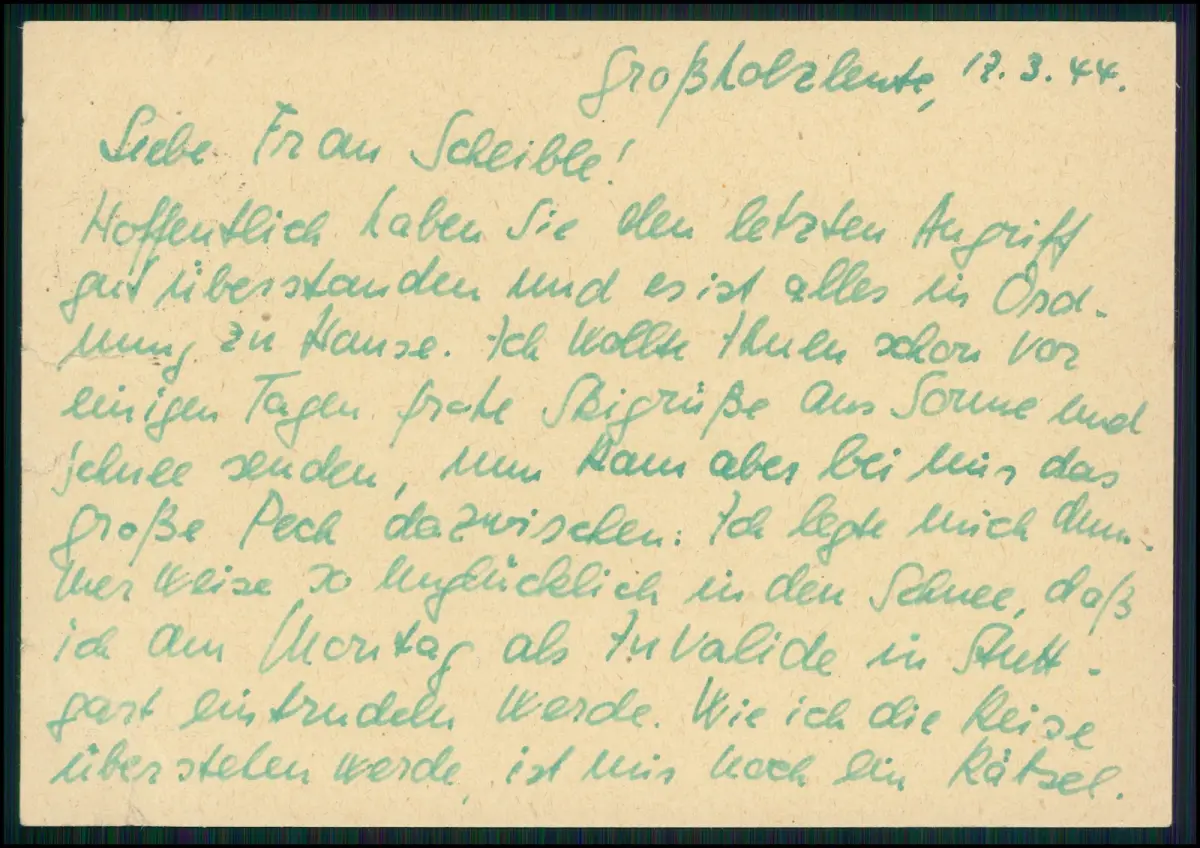 Großholzleute, 17.3.44.
Liebe Frau Scheible!
Hoffentlich haben Sie den letzten Angriff
gut überstanden und es ist alles in Ord-
nung zu Hause. Ich wollte Ihnen schon vor
einigen Tagen frohe Skigrüße aus Sonne und
Schnee senden, nun kam aber bei mir das
große Pech dazwischen: Ich legte mich dum-
mer weise so unglücklich in den Schnee, daß
ich am Montag als Invalide in Stutt-
gart eintrudeln werde. Wie ich die Reise
überstehen werde, ist mir noch ein Rätsel.